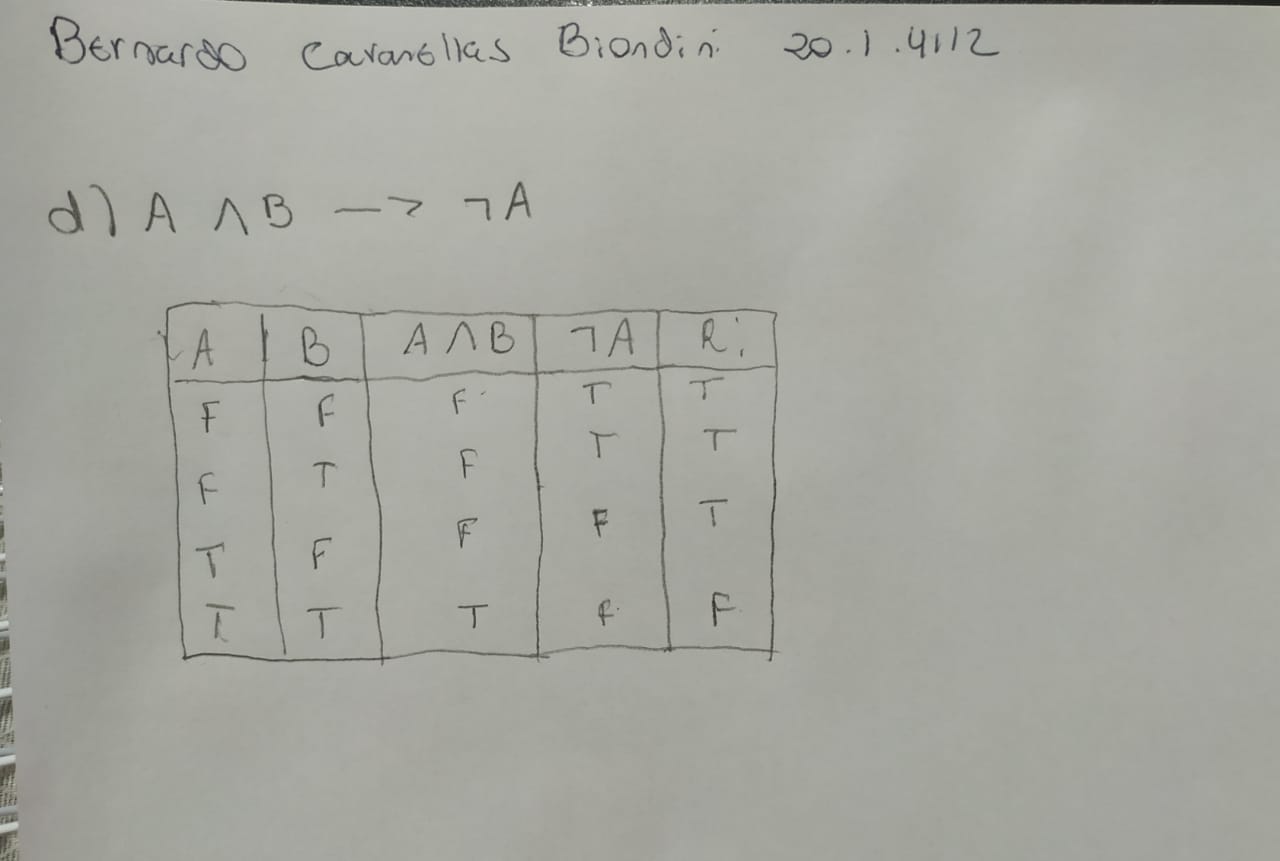 Bernardo Cavanellas Biondini 20.1.4112
d) A ∧ B —> ¬A
A B A ∧ B ¬A R;
F F F T T
F T F T T
T F F F T
T T T F F